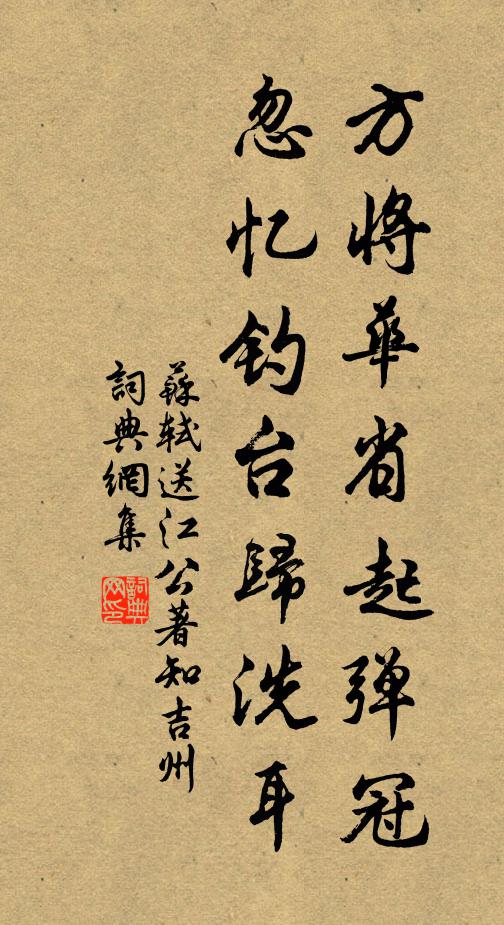 方將華省起弹冠
忽忆钓台歸洗耳
蘇軾送江公著知吉州
詞典網集
詞典網印